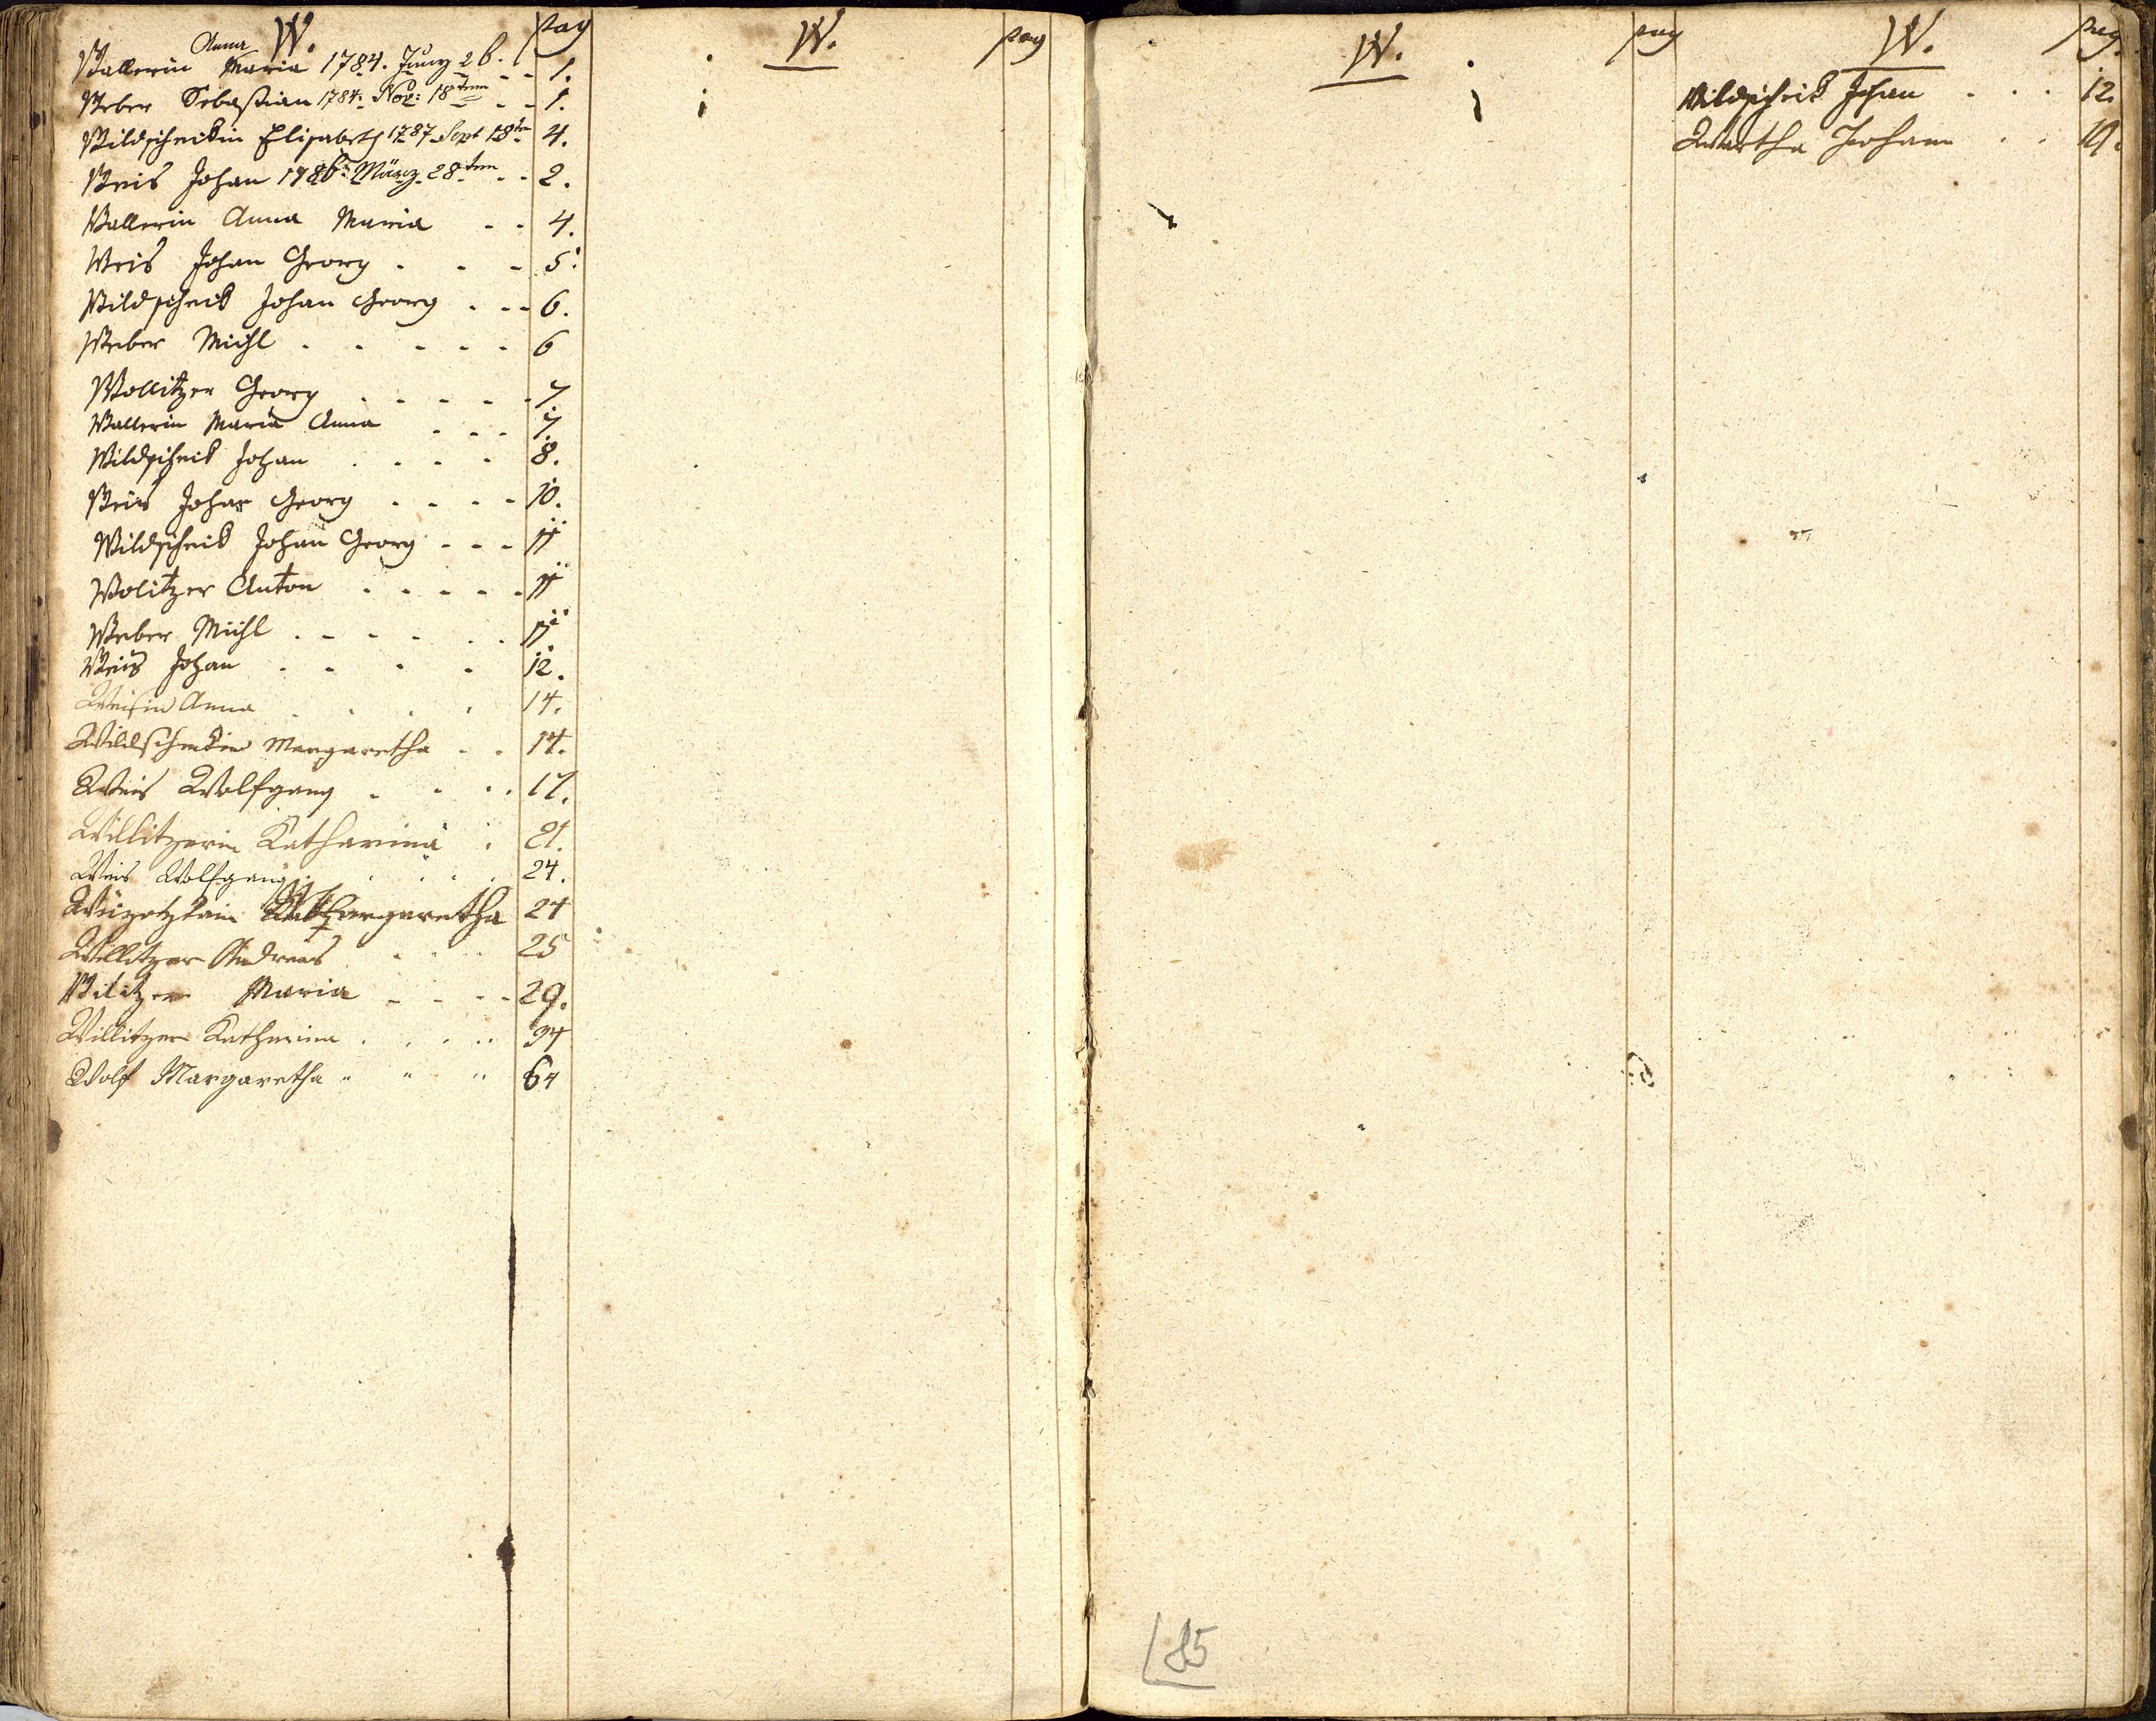 W. pag
Wallerin Anna Maria 1784. Juny 26. - - 1.
Weber Sebastian 1784. Nov: 18ten - - 1.
Wildscheckin Elisabeth 1787 Sept 18ten 4.
Weis Johan 1786: Märcz 28ten - - 2.
Wallerin Anna Maria - - 4.
Weis Johan Georg - - - 5.
Wildscheck Johan Georg - - - 6.
Weber Michl - - - - - 6
Wollitzer Georg - - - - - 7
Wallerin Maria Anna - - - 7.
Wildscheck Johan - - - - 8.
Weis Johan Georg - - - - 10.
Wildscheck Johan Georg - - - 11
Wolitzer Anton - - - - - 11
Weber Michl - - - - - - 11
Weis Johan - - - - 12.
Weisin Anna . . . . 14.
Wildscheckin Margaretha . . 14.
Weis Wolfgang . . . . 17.
Willitzerin Katharina . 21.
Weis Wolfgang . . . . 24.
Margaretha 24
Willitzer Andreas . . . . 25
Wilitzer Maria - - - - 29.
Willitzer Katharina . . . . . 34
Wolf Margaretha " " " 64
W. pag
W. pag
W. pag.
Wildscheck Johan . . . 12.
Wartha Johann . . 19.
85